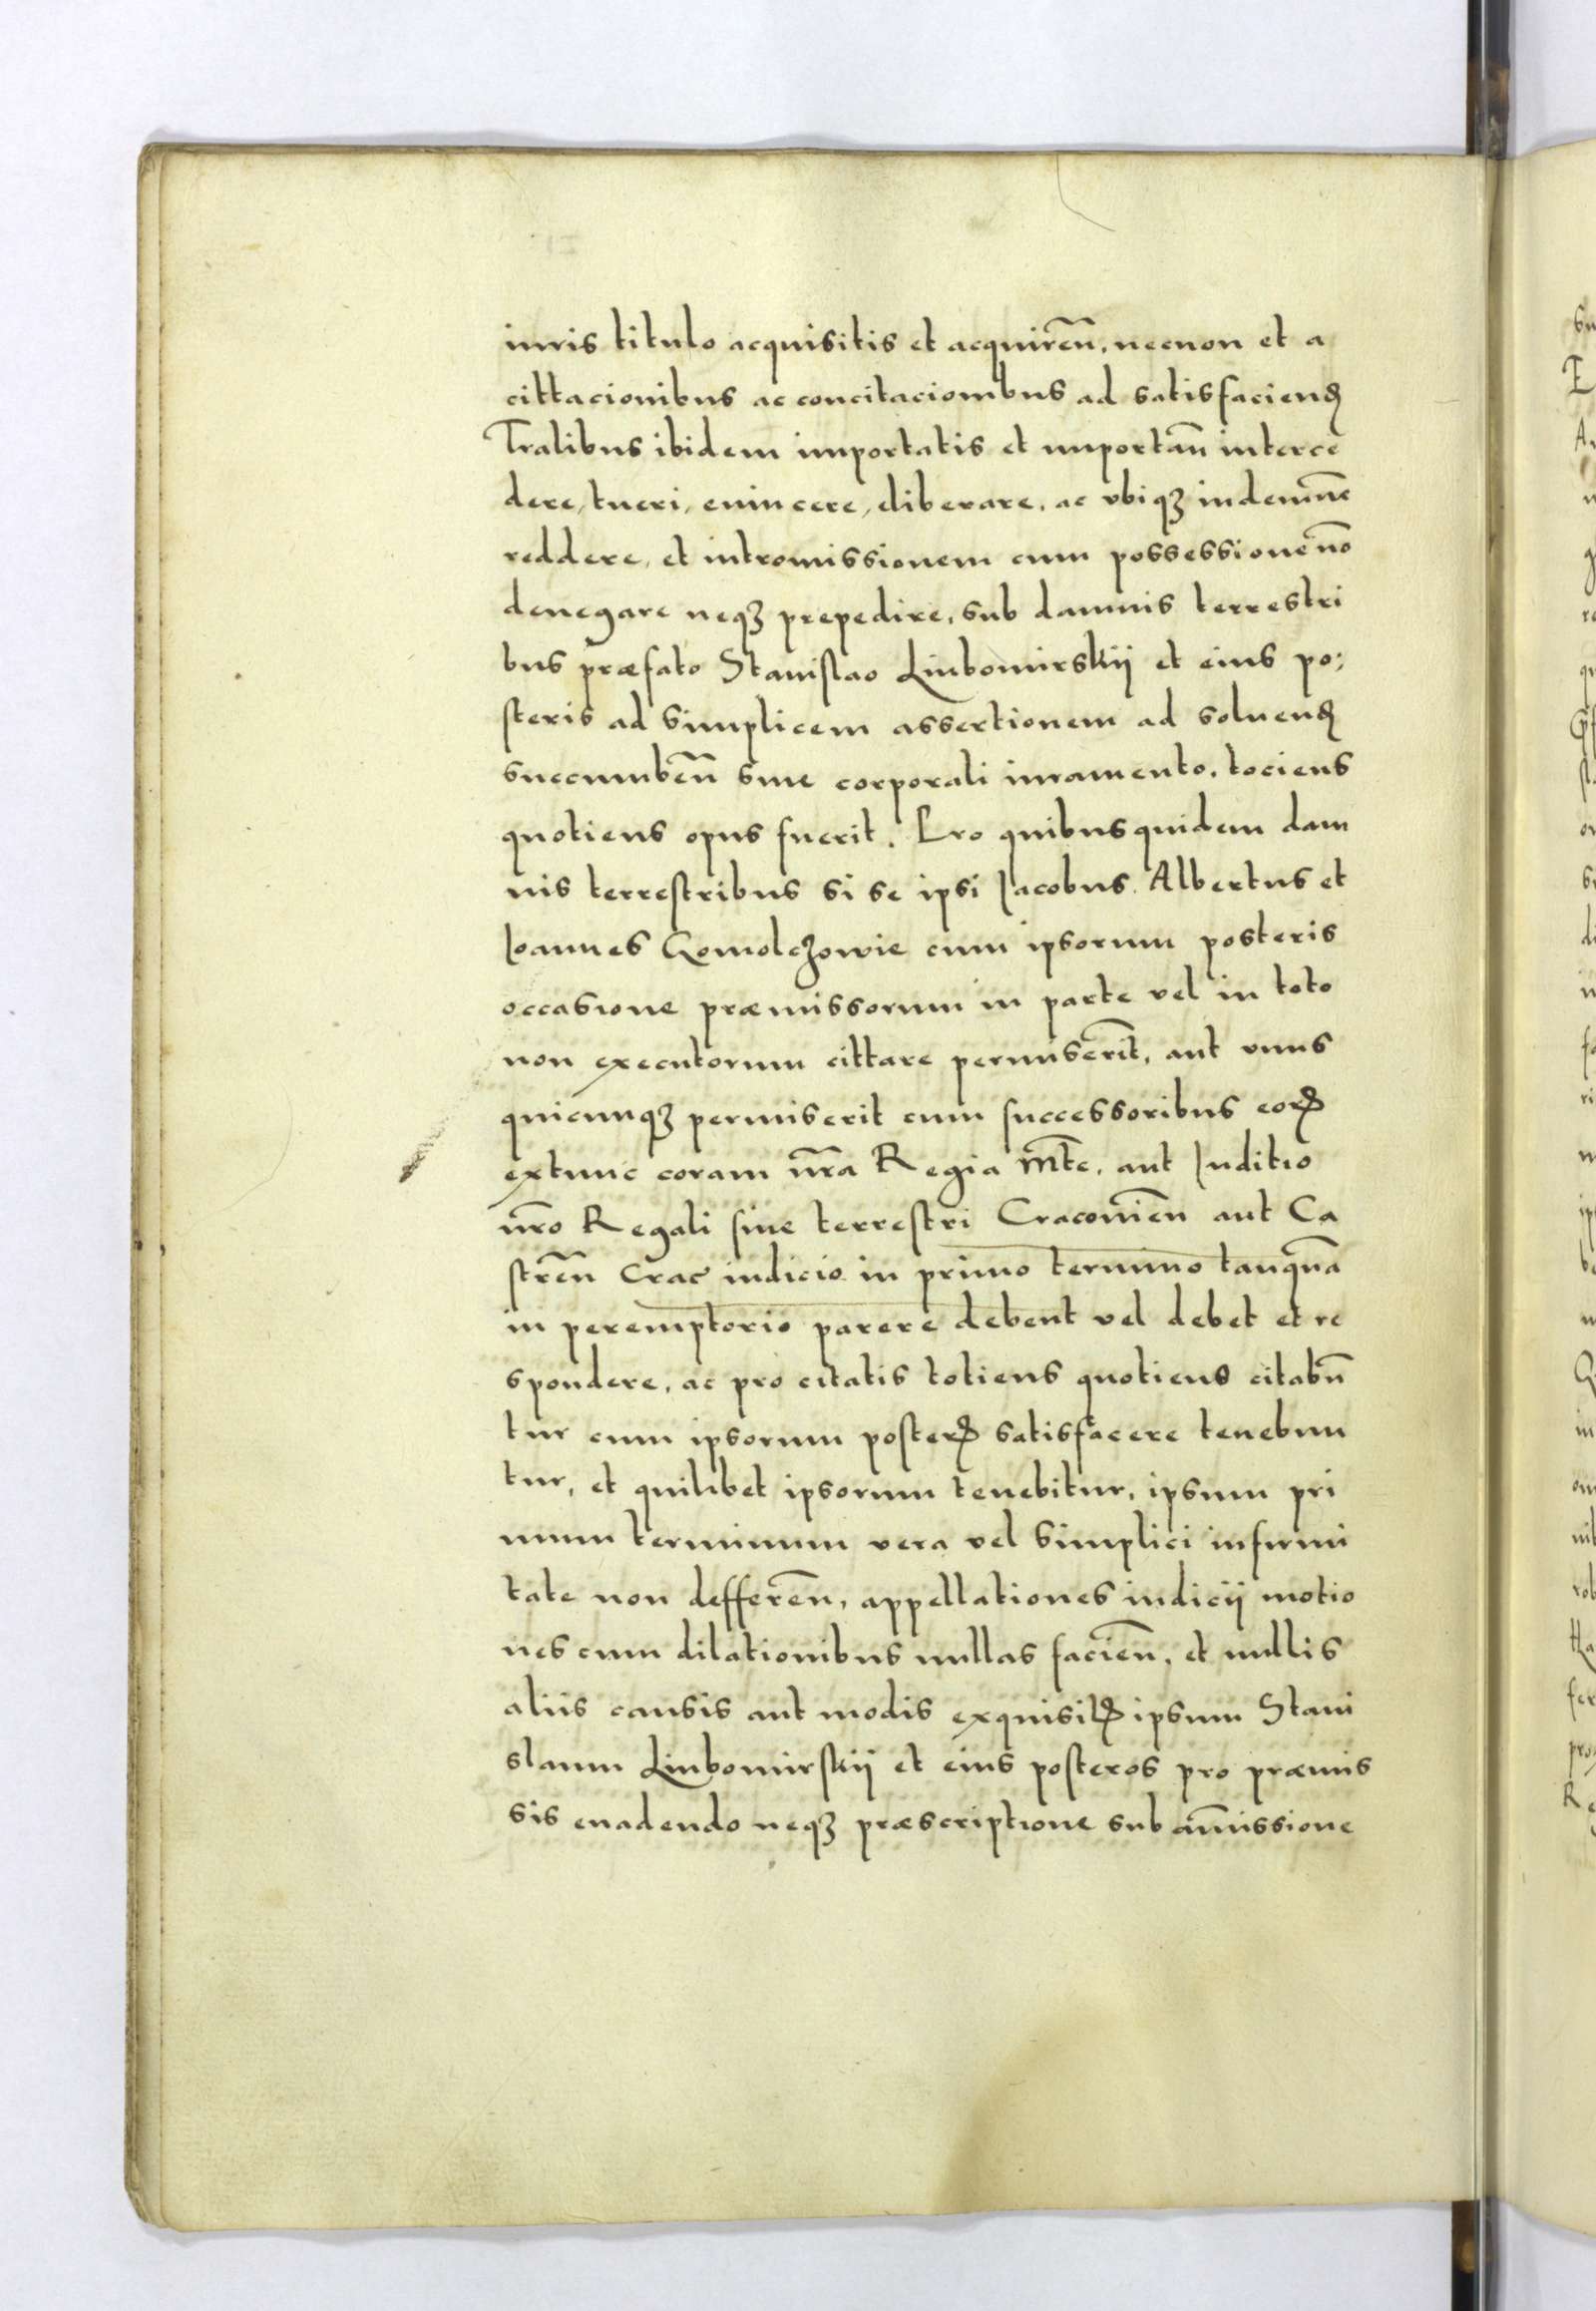 iuris titulo acquisitis et acquireñ, necnon et a
cittacionibus ac concitacionibus ad satisfaciend̃
Tralibus ibidem importatis et importañ interce
dere, tueri, euincere, eliberare, ac vbiqꝫ indemne
reddere, et intromissionem cum possessione nō
denegare neqꝫ prepedire, sub damnis terrestri
bus præfato Stanislao Liubomirskij et eius po:
steris ad simplicem assertionem ad soluend̃
succumbeñ sine corporali iuramento, tociens
quotiens opus fuerit. Pro quibus quidem dam
nis terrestribus si se ipsi Iacobus, Albertus et
Ioannes Gomolczowie cum ipsorum posteris
occasione præmissorum in parte vel in toto
non executorum cittare permiseriñt, aut vnus
quicunqꝫ permiserit cum successoribus eorꝝ
extunc coram nr̃a Regia Mt̃e, aut Iuditio
nr̃o Regali siue terrestri Cracouieñ aut Ca
streñ Crac̃ iudicio in primo termino tanquā
in peremptorio parere debent vel debet et re
spondere, ac pro citatis totiens quotiens citabũ
tur cum ipsorum posterꝭ satisfacere tenebun
tur, et quilibet ipsorum tenebitur, ipsum pri
mum terminum vera vel simplici infirmi
tate non defferēn, appellationes iudicij motio
nes cum dilationibus nullas facieñ, et nullis
aliis causis aut modis exquisitꝭ ipsum Stani
slaum Liubomirskij et eius posteros pro præmis
sis euadendo neqꝫ præscriptione sub am̃issione